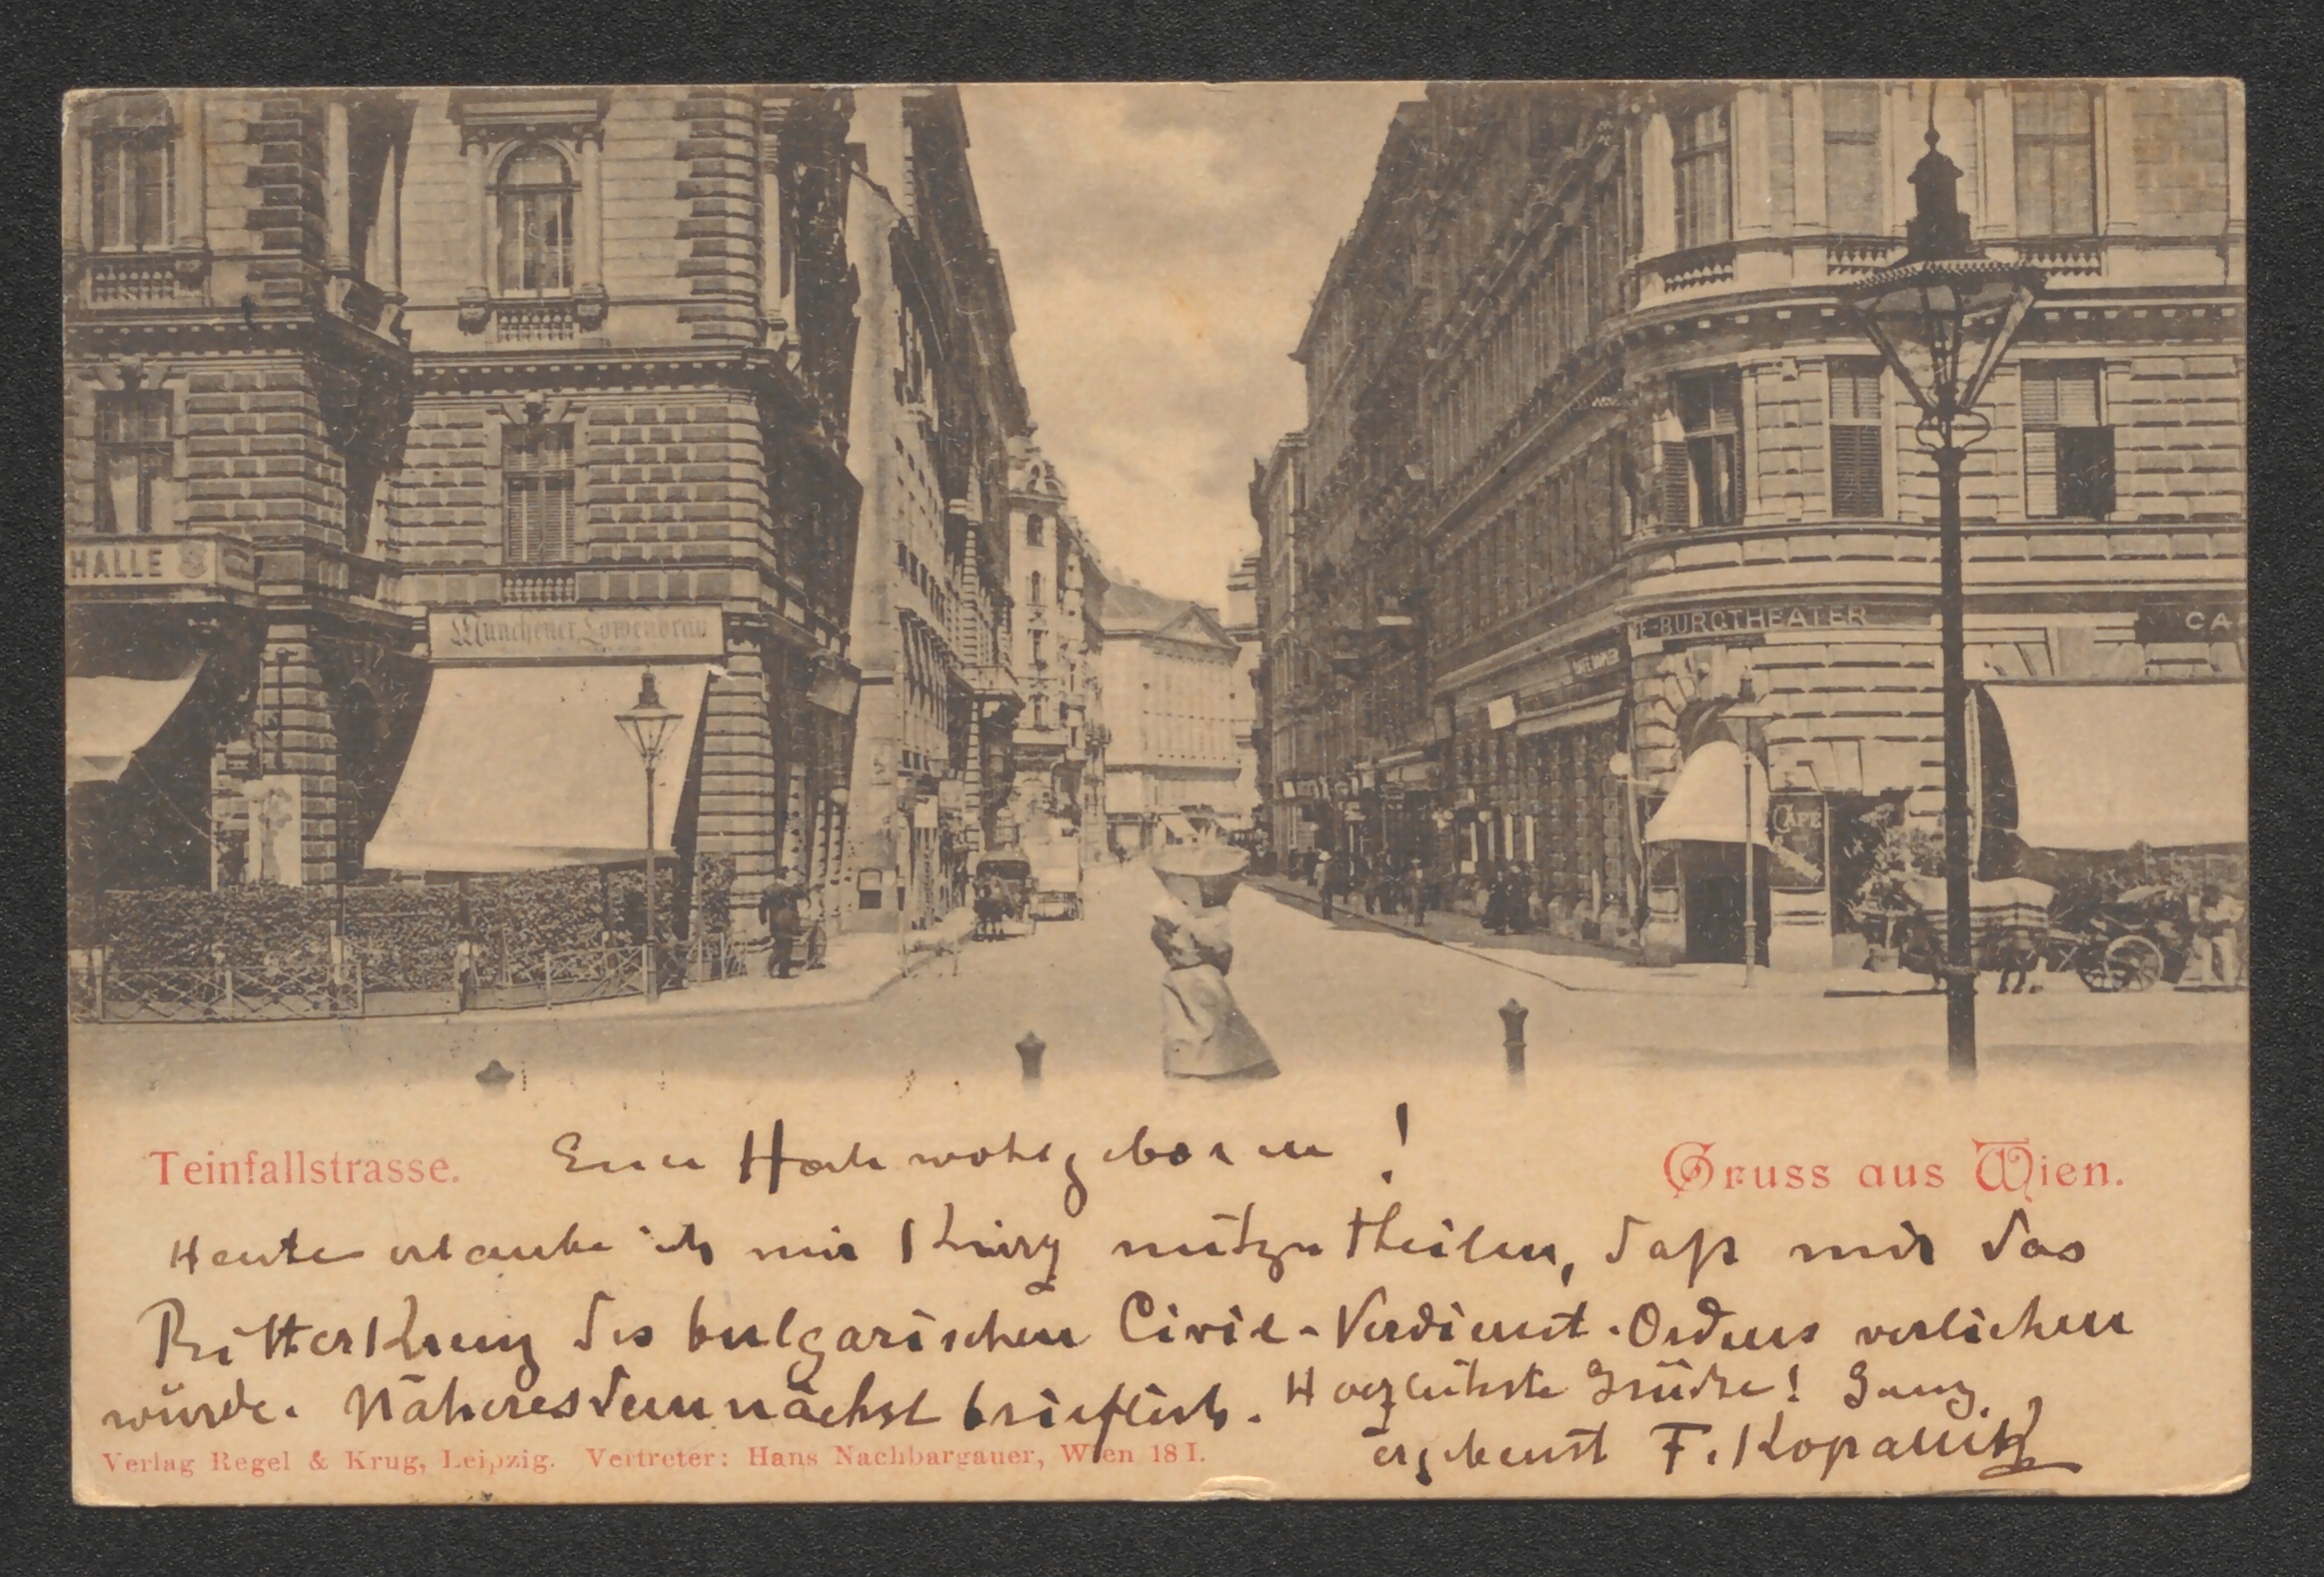 HALLE
Münchener Löwenbräu
E BURGTHEATER
CA
CAFE
Teinfallstrasse.
Gruss aus Wien.
Euer Hochwohlgeboren!
Heute erlaube ich mir kurz mitzutheilen, daß mir das
Ritterkreuz des bulgarischen Civil-Verdienst-Ordens verliehen
wurde. Näheres demnächst brieflich. Herzlichste Grüße! Ganz
ergebenst F. Kopallik
Verlag Regel & Krug, Leipzig. Vertreter: Hans Nachbargauer, Wien 18 I.